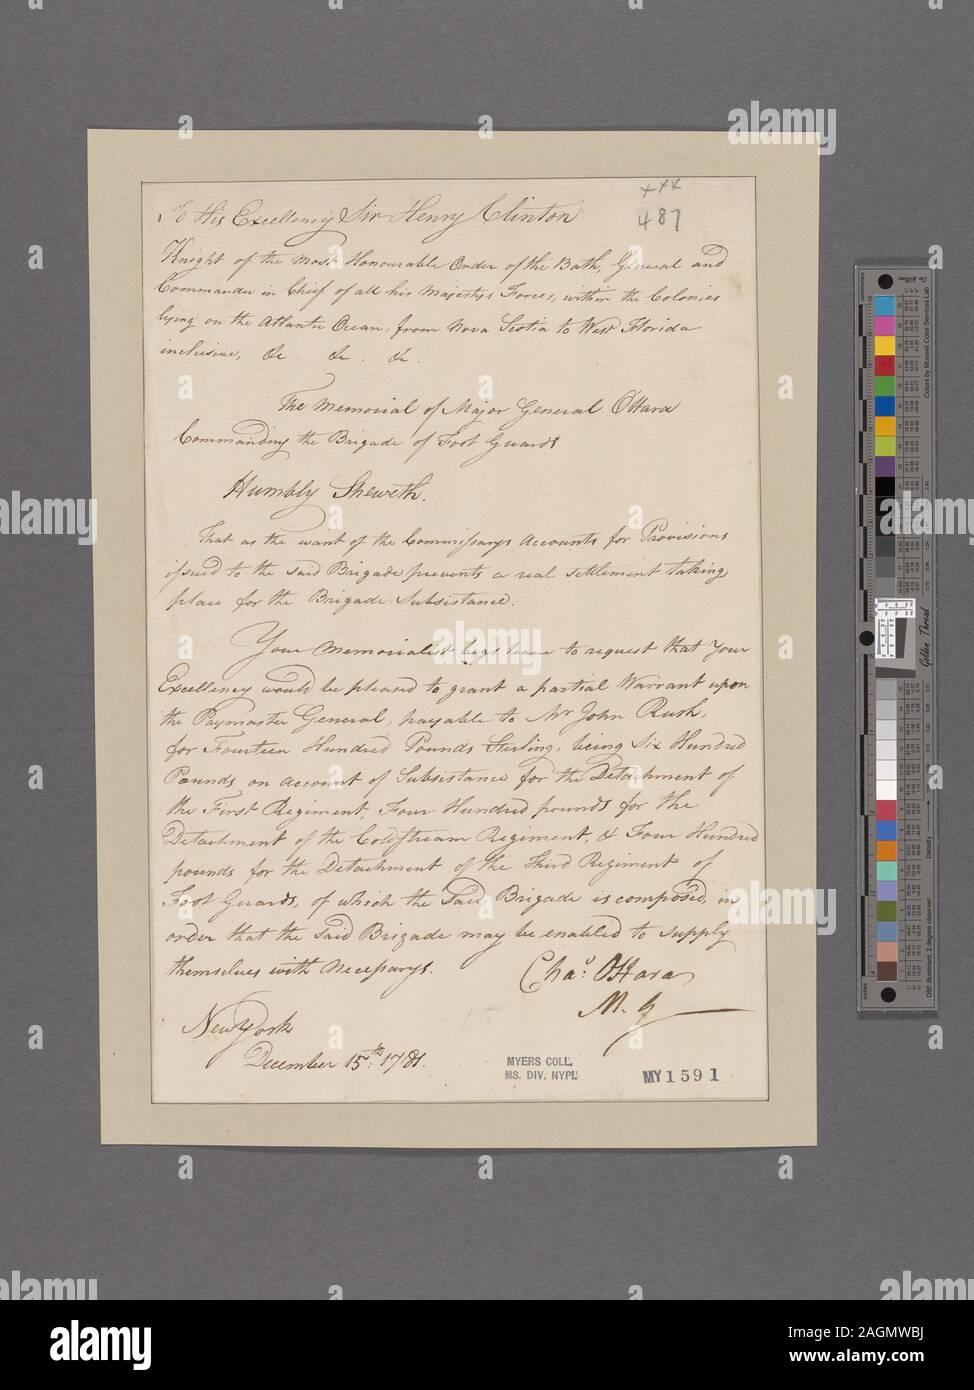 xxx
487
To His Excellency Sir Henry Clinton
Knight of the most Honourable Order of the Bath, General and
Commander in Chief of all his Majestys Forces, within the Colonies
lying on the Atlantic Ocean, from Nova Scotia to West Florida
inclusive, &c &c. &c.
The Memorial of Major General O'Hara
Commanding the Brigade of Foot Guards
Humbly Sheweth.
That as the want of the Commissarys Accounts for Provisions
issued to the said Brigade prevents a real settlement taking
place for the Brigade Subsistance.
Your Memorialist begs leave to request that Your
Excellency would be pleased to grant a partial Warrant upon
the Paymaster General, payable to Mr John Rush,
for Fourteen Hundred Pounds Sterling, being Six Hundred
Pounds on account of Subsistance for the Detachment of
the First Regiment, Four Hundred pounds for the
Detachment of the Coldstream Regiment, & Four Hundred
pounds for the Detachment of the Third Regiment of
Foot Guards, of which the said Brigade is composed, in
order that the said Brigade may be enabled to supply
themselves with Necessarys.
Chas. OHara
M. G
New York
December 15th. 1781.
MYERS COLL.
MS. DIV. NYPL
MY1591
Colors by Munsell Color Services Lab
Golden Thread
Density
D50 Illuminant, 2 degree observer
inches
alamy
a
alamy
Image ID: 2AGMWBJ
www.alamy.com